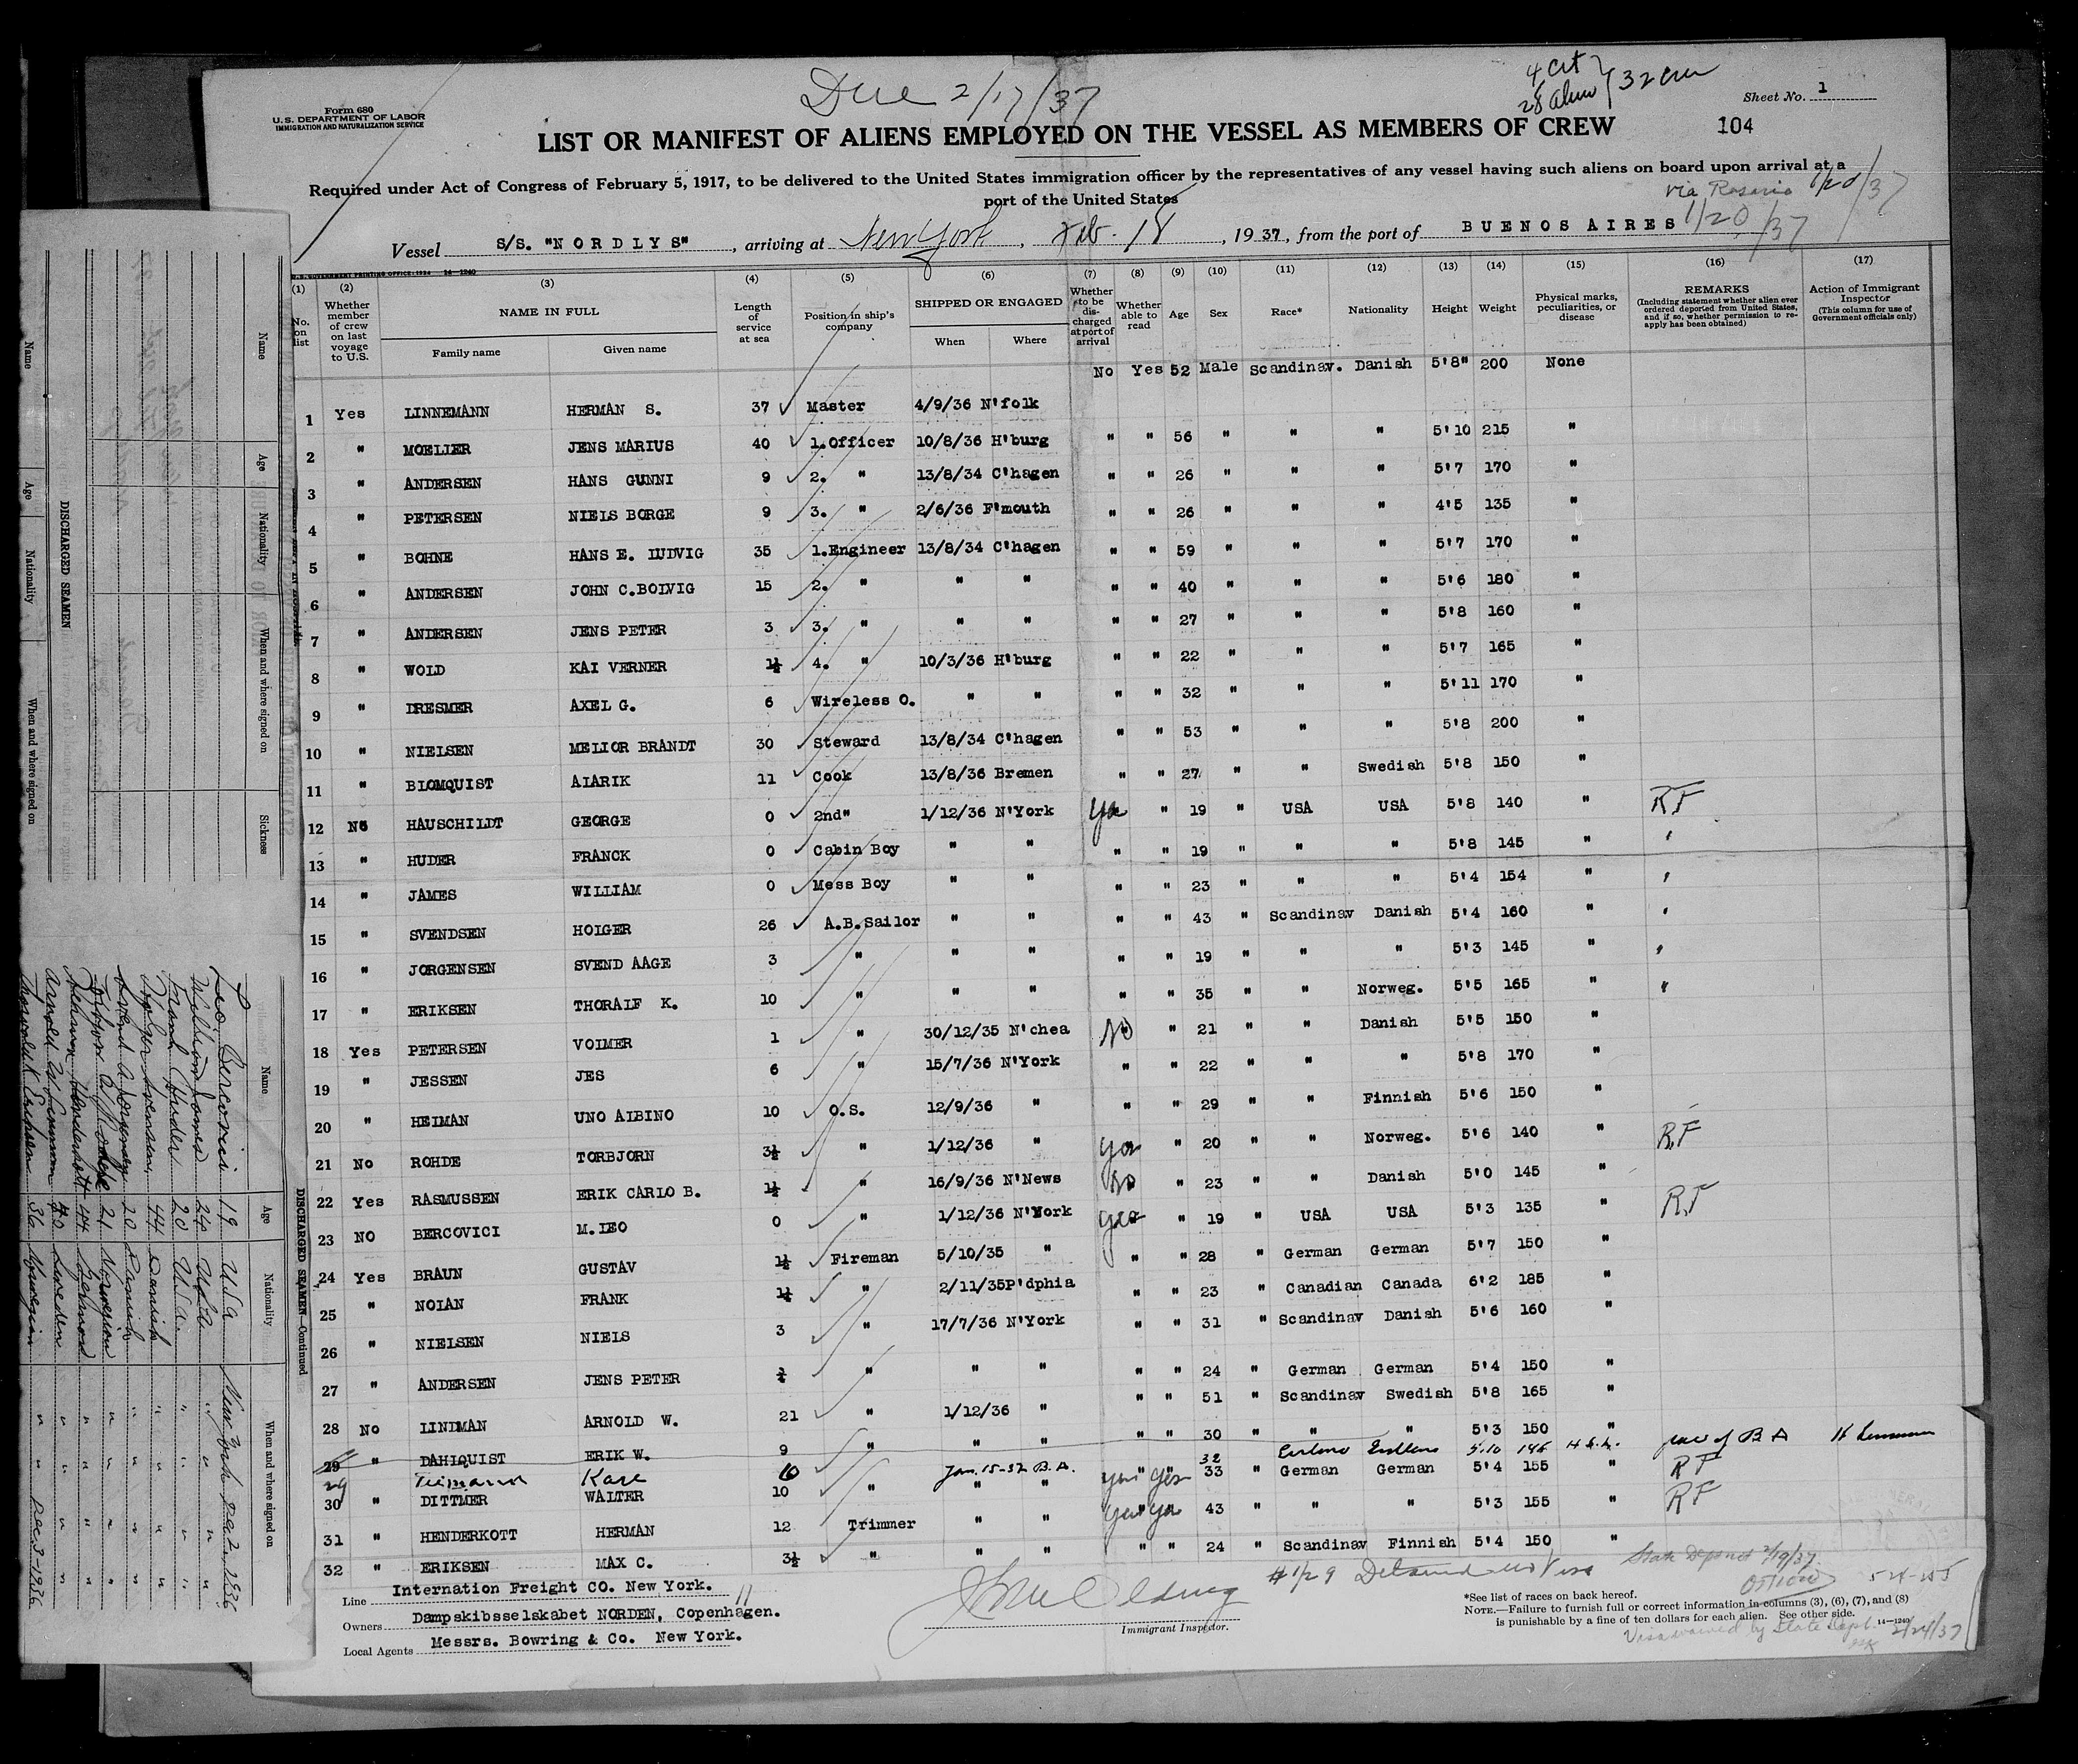 Due 2/17/37
4 Cit
28 Alien } 32 Crew
Form 680
U. S. DEPARTMENT OF LABOR
IMMIGRATION AND NATURALIZATION SERVICE
Sheet No. 1
104
LIST OR MANIFEST OF ALIENS EMPLOYED ON THE VESSEL AS MEMBERS OF CREW
Required under Act of Congress of February 5, 1917, to be delivered to the United States immigration officer by the representatives of any vessel having such aliens on board upon arrival at a
port of the United States
via Rosario 1/20/37
Vessel S/S. "NORDLYS", arriving at New York, Feb. 18, 1937, from the port of BUENOS AIRES 1/20/37
U. S. GOVERNMENT PRINTING OFFICE: 1934 14-1240
(1) (2) (3) (4) (5) (6) (7) (8) (9) (10) (11) (12) (13) (14) (15) (16) (17)
No. on list
Whether member of crew on last voyage to U.S.
NAME IN FULL
Family name Given name
Length of service at sea
Position in ship's company
SHIPPED OR ENGAGED
When Where
Whether to be discharged at port of arrival
Whether able to read
Age
Sex
Race*
Nationality
Height
Weight
Physical marks, peculiarities, or disease
REMARKS
(Including statement whether alien ever ordered deported from United States, and if so, whether permission to reapply has been obtained)
Action of Immigrant Inspector
(This column for use of Government officials only)
1 Yes LINNEMANN HERMAN S. 37 Master 4/9/36 N'folk No Yes 52 Male Scandinav. Danish 5'8" 200 None
2 " MOELLER JENS MARIUS 40 1.Officer 10/8/36 H'burg " " 56 " " " 5'10 215 "
3 " ANDERSEN HANS GUNNI 9 2. " 13/8/34 C'hagen " " 26 " " " 5'7 170 "
4 " PETERSEN NIELS BORGE 9 3. " 2/6/36 F'mouth " " 26 " " " 4'5 135 "
5 " BOHNE HANS E. LUDVIG 35 1.Engineer 13/8/34 C'hagen " " 59 " " " 5'7 170 "
6 " ANDERSEN JOHN C.BOLVIG 15 2. " " " " " 40 " " " 5'6 180 "
7 " ANDERSEN JENS PETER 3 3. " " " " " 27 " " " 5'8 160 "
8 " WOLD KAI VERNER 1½ 4. " 10/3/36 H'burg " " 22 " " " 5'7 165 "
9 " DRESMER AXEL G. 6 Wireless O. " " " " 32 " " " 5'11 170 "
10 " NIELSEN MELIOR BRANDT 30 Steward 13/8/34 C'hagen " " 53 " " " 5'8 200 "
11 " BLOMQUIST ALARIK 11 Cook 13/8/36 Bremen " " 27 " " Swedish 5'8 150 "
12 No HAUSCHILDT GEORGE 0 2nd" 1/12/36 N'York Yes " 19 " USA USA 5'8 140 " RF
13 " HUDER FRANCK 0 Cabin Boy " " " " 19 " " " 5'8 145 " "
14 " JAMES WILLIAM 0 Mess Boy " " " " 23 " " " 5'4 154 " "
15 " SVENDSEN HOLGER 26 A.B.Sailor " " " " 43 " Scandinav Danish 5'4 160 " "
16 " JORGENSEN SVEND AAGE 3 " " " " " 19 " " " 5'3 145 " "
17 " ERIKSEN THORALF K. 10 " " " " " 35 " " Norweg. 5'5 165 " "
18 Yes PETERSEN VOLMER 1 " 30/12/35 N'chea No " 21 " " Danish 5'5 150 "
19 " JESSEN JES 6 " 15/7/36 N'York " " 22 " " " 5'8 170 "
20 " HEIMAN UNO ALBINO 10 O.S. 12/9/36 " " " 29 " " Finnish 5'6 150 "
21 No ROHDE TORBJORN 3½ " 1/12/36 " Yes " 20 " " Norweg. 5'6 140 " RF
22 Yes RASMUSSEN ERIK CARLO B. 1½ " 16/9/36 N'News No " 23 " " Danish 5'0 145 "
23 NO BERCOVICI M.LEO 0 " 1/12/36 N'York Yes " 19 " USA USA 5'3 135 " RF
24 Yes BRAUN GUSTAV 1½ Fireman 5/10/35 " " " 28 " German German 5'7 150 "
25 " NOLAN FRANK 1½ " 2/11/35 P'dphia " " 23 " Canadian Canada 6'2 185 "
26 " NIELSEN NIELS 3 " 17/7/36 N'York " " 31 " Scandinav Danish 5'6 160 "
27 " ANDERSEN JENS PETER " " " " " 24 " German German 5'4 150 "
28 No LINDMAN ARNOLD W. 21 " 1/12/36 " " " 51 " Scandinav Swedish 5'8 165 "
29 " DAHLQUIST ERIK W. 9 " " " " " 30 " " " 5'3 150 "
29 Kare 10 Jan. 15-37 B.A. Yes 32 5.10 146 B A
30 " DITTMER WALTER 10 " " " " " 33 " German German 5'4 155 " RF
31 " HENDERKOTT HERMAN 12 Trimmer " " Yes Yes 43 " " " 5'3 155 " RF
32 " ERIKSEN MAX C. 3½ " " " " " 24 " Scandinav Finnish 5'4 150 "
Line Internation Freight CO. New York.
Owners Dampskibsselskabet NORDEN, Copenhagen.
Local Agents Messrs. Bowring & Co. New York.
Immigrant Inspector.
*See list of races on back hereof.
NOTE.—Failure to furnish full or correct information in columns (3), (6), (7), and (8)
is punishable by a fine of ten dollars for each alien. See other side.
14-1240
Visa waived by State Dept. 2/24/37
DISCHARGED SEAMEN
Name Age Nationality When and where signed on Sickness
DISCHARGED SEAMEN—Continued
Name Age Nationality When and where signed on
Leo Bercovici 19 USA New York Dec 2, 1936
William James 24 USA " "
Frank Huder 20 USA " "
Holger Svendsen 44 Danish " "
Svend A Jorgensen 20 Danish " "
Torbjorn Rohde 21 Norwegian " "
Herman Henderkott 44 German " "
Arnold W Lindman Sweden " "
Thorvald K Eriksen 36 Norwegian " " Dec. 3-1936